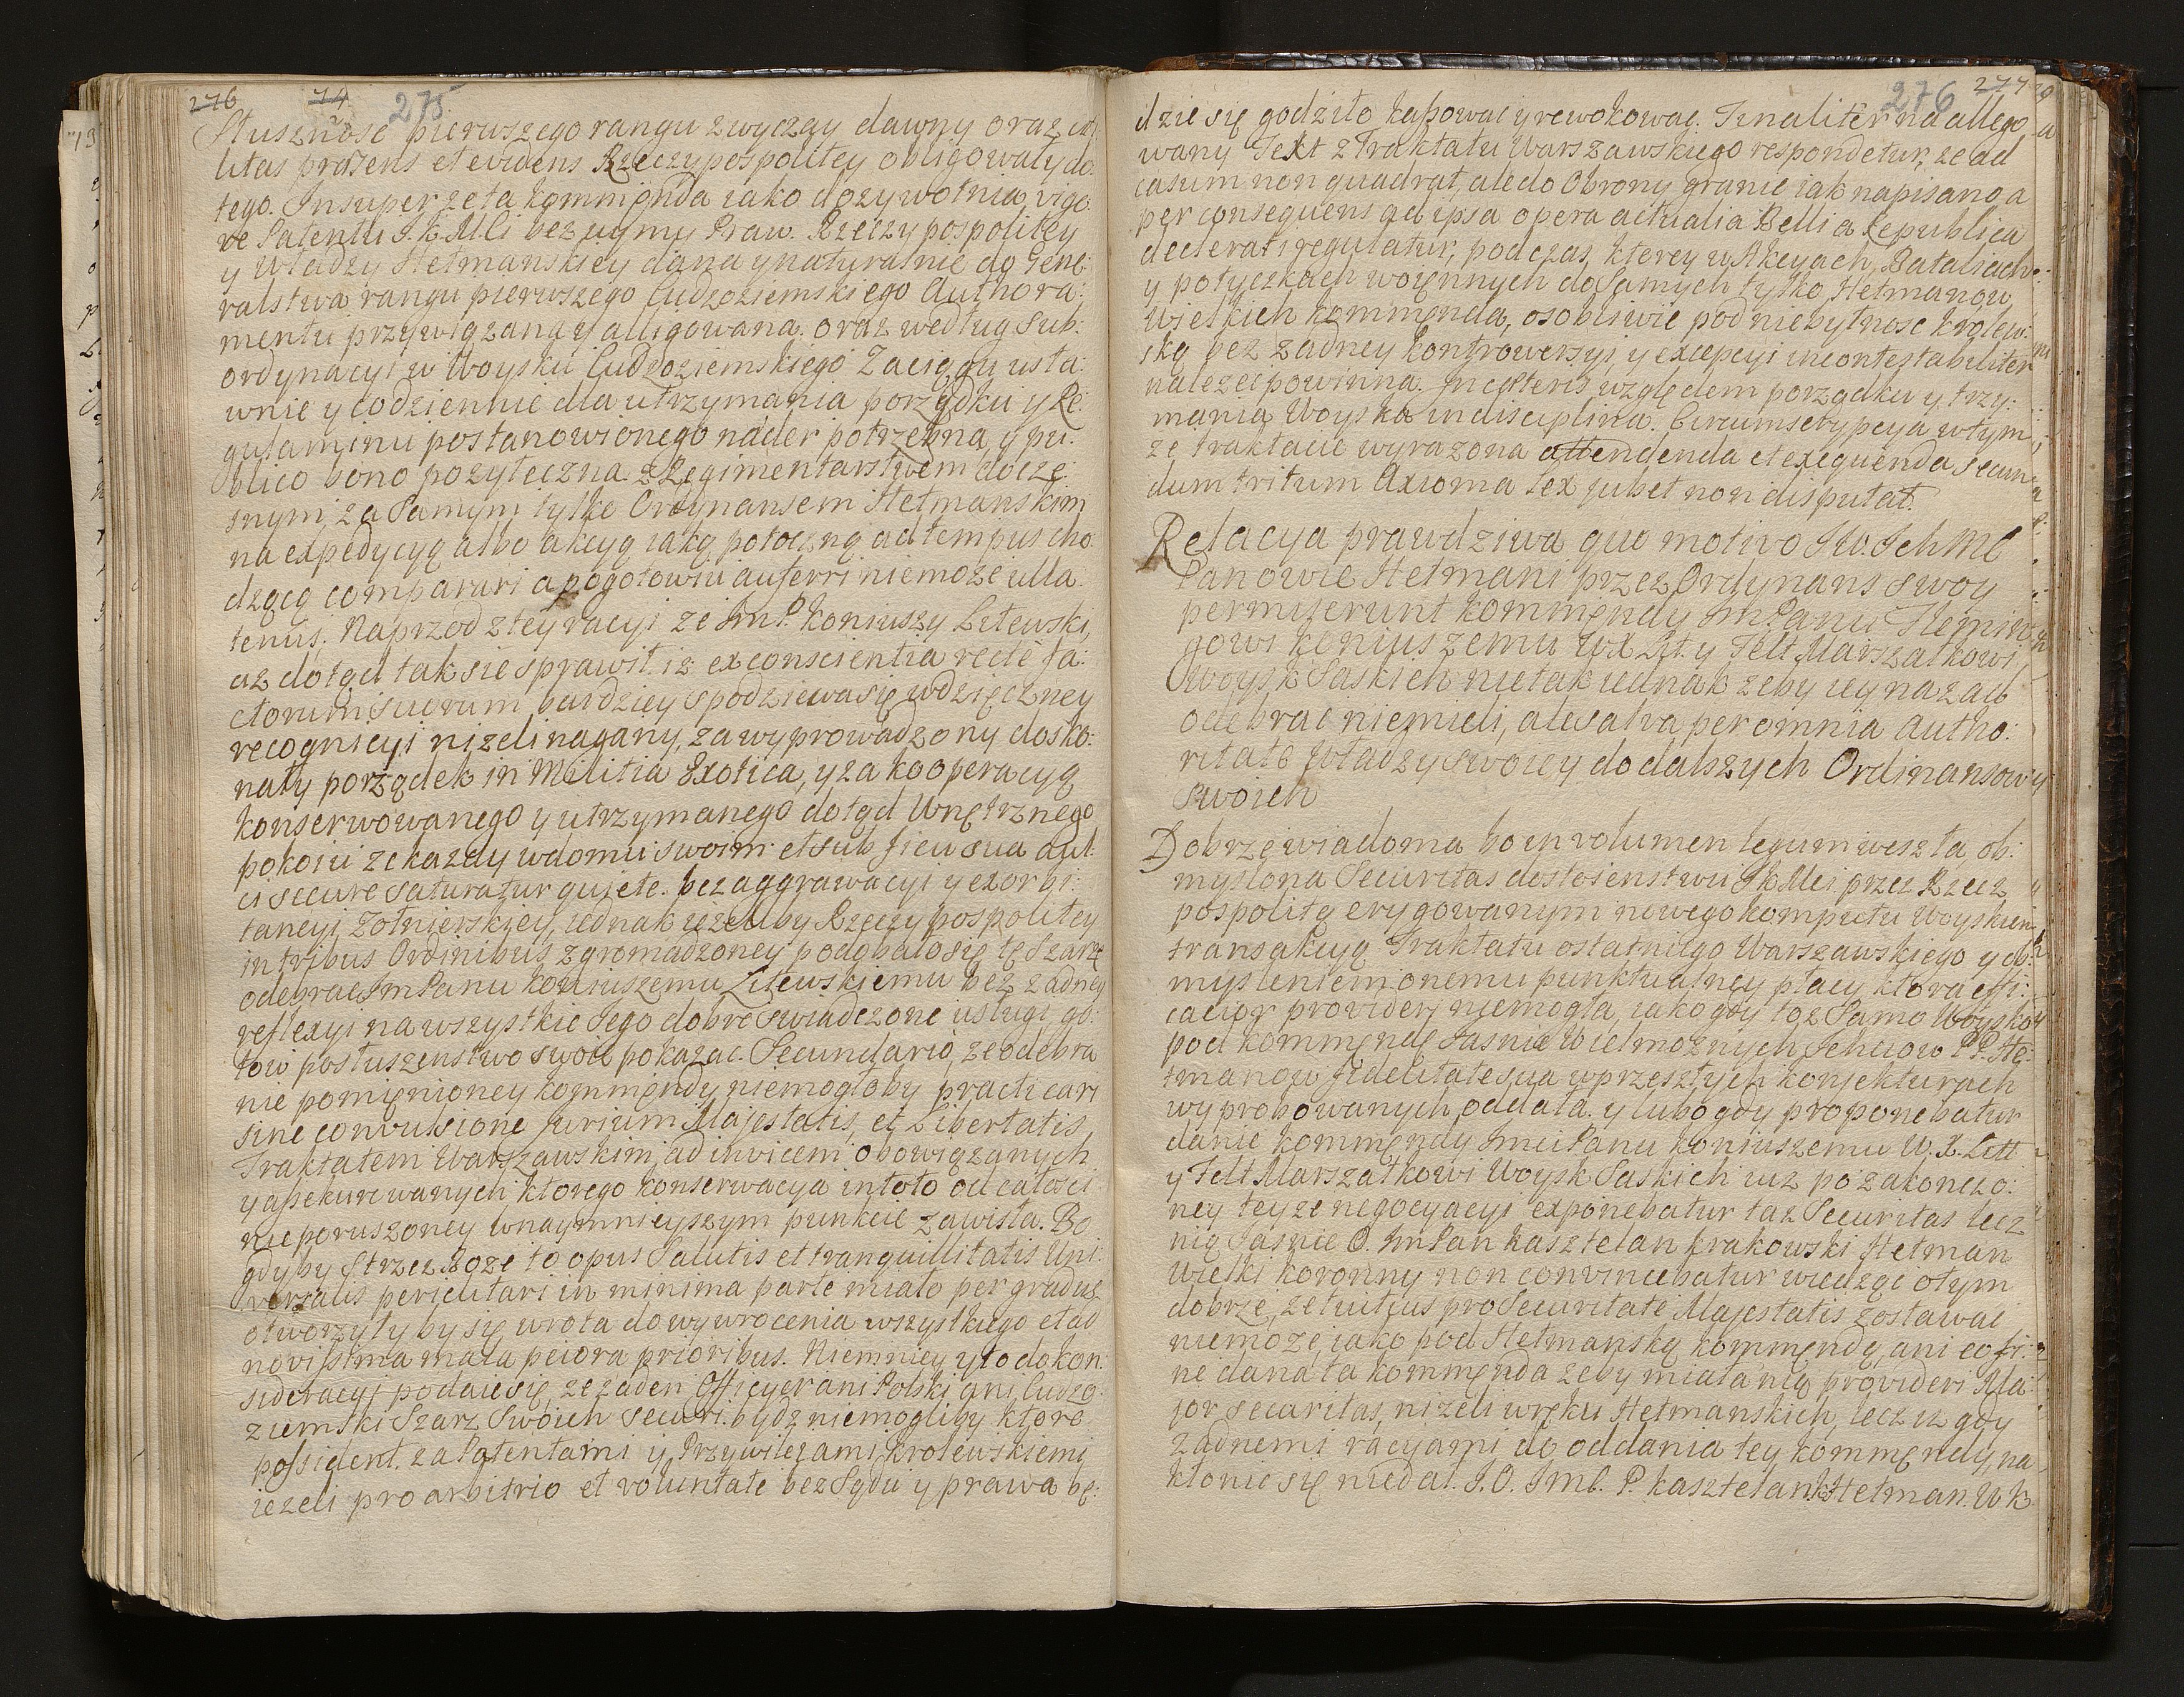 276 74 275
Słusznosc pierwszego rangu zwyczay dawny oraz uti
litas præsens et evidens Rzeczypospolitey obligowały do
tego. Insuper ze ta kommenda iako dozywotnia, vigo
re Patentu J. K. Mci bez uymy Praw. Rzeczypospolitey
y Władzy Hetmanskiey dana y naturalnie do Gene:
ralstwa rangu pierwszego Cudzoziemskiego Authora:
mentu przywiązana y alligowana. oraz według Sub:
ordynacyi w Woysku Cudzoziemskiego Zaciągu usta:
wnie y codziennie dla utrzymania porządku y Re:
gulaminu postanowionego nader potrzebna, y pu:
blico bono pozyteczna. z Regimentarstwem docze:
snym, za Samym tylko Ordynansem Hetmanskim
na expedycyą albo akcyą iaką potoczną ad tempus cho
dzącą comparari a pogotowiu auferri niemoze ulla
tenus. Naprzod z tey racyi ze ImP. Koniuszy Litewski,
az dotąd tak sie sprawił. iz ex conscientia recte fa:
ctorum suorum bardziey spodziewa się wdzięczney
recognicyi nizeli nagany, za wyprowadzony dosko:
nały porządek in Militia Exotica, y za kooperacyą
konserwowanego y utrzymanego dotąd Wnętrznego
pokoiu ze kazdy w domu swoim et sub ficu sua dul:
ci secure saturatur quiete. bez aggrawacyi y exorbi:
tancyi Zołnierskiey, iednak iezeliby Rzeczypospolitey
in tribus Ordinibus zgromadzoney podobało się tę Szarzę
odebrac ImPanu Koniuszemu Litewskiemu bez zadney
reflexyi na wszystkie Jego dobre swiadczone usługi go:
tow posłuszenstwo swoie pokazac. Secundario, ze odebra
nie pomienioney kommendy niemogłoby practicari
sine convulsione Jurium Majestatis, et Libertatis
Traktatem Warszawskim ad invicem obowiązanych
y assekurowanych ktorego konserwacya in toto od całosci
nieporuszoney w naymnieyszym punkcie zawisła. Bo
gdyby Strzez Boze to opus Salutis et tranquillitatis Uni:
versalis periclitari in minima parte miało per gradus
otworzyłyby się wrota do wywrocenia wszystkiego et ad
novissima mala peiora prioribus. Niemniey y to do kon:
sideracyi podaie się, ze zaden Officyer ani Polski ani Cudzo
ziemski Szarz Swoich securi. bydz niemogliby ktore
possident. za Patentami y Przywileiami Krolewskiemi
iezeli pro arbitrio et voluntate bez Sądu y prawa bę:
276 277
dzie się godziło kassowac y rewokowac. Finaliter na allego
wany Text z Traktatu Warszawskiego respondetur, ze ad
casum non quadrat, ale do Obrony granic iak napisano, a
per consequens ad ipsa opera actualia Belli a Republica
declerati regulatur, podczas, ktorey w Akcyach, Bataliach
y potyczkach woiennych do Samych tylko Hetmanow
Wielkich kommenda, osobliwie pod niebytnosc krolew:
ską bez zadney kontrowersyi, y excepcyi incontestabiliter
nalezec powinna. In cæteris względem porządku y trzy:
mania Woyska in disciplina. Circumscrypcya w tym
ze traktacie wyrazona attendenda et exequenda secun
dum tritum Axioma Lex jubet non disputat.
Relacya prawdziwa quo motivo JW. Ich Mc
Panowie Hetmani przez Ordynans swoy
permiserunt kommendy ImPanu Flemin
gowi Koniuszemu WX Lit. y Felt Marszałkowi
Woysk Saskich nie tak iednak zeby iey nazad
odebrac niemieli, ale salva per omnia Autho:
ritate Władzy swoiey do dalszych Ordinansow
Swoich
Dobrze wiadoma bo in volumen legum weszła, ob:
myslona Securitas dostoienstwu JKMci. przez Rzecz
pospolitą erygowanym nowego komputu Woyskiem
transakcyą Traktatu ostatniego Warszawskiego y ob:
mysleniem onemu punktualney płacy, ktora effi:
cacior provideri niemogła, iako gdy toz Samo Woysko
pod kommendę Jasnie Wielmoznych Ichmciow PP. He:
tmanow fidelitate sua w przeszłych koniekturach
wyprobowanych oddała. y lubo gdy proponebatur
danie kommendy Imci Panu Koniuszemu W. X. Litt
y Felt Marszałkowi Woysk Saskich iuz po zakonczo:
ney teyze negocyacyi exponebatur taz Securitas lecz
nią Jasnie O. ImPan Kasztelan Krakowski Hetman
Wielki Koronny non convincebatur wiedząc o tym
dobrze, ze tuitius pro Securitate Majestatis zostawac
niemoze, iako pod Hetmanską kommendą, ani eo fi:
ne dana ta kommenda zeby miała nią provideri Ma:
jor securitas, nizeli w ręku Hetmanskich, lecz iz gdy
zadnemi racyami do oddania tey kommendy, na
kłonic się niedał. J. O. Imc. P. Kasztelan K. Hetman. W K